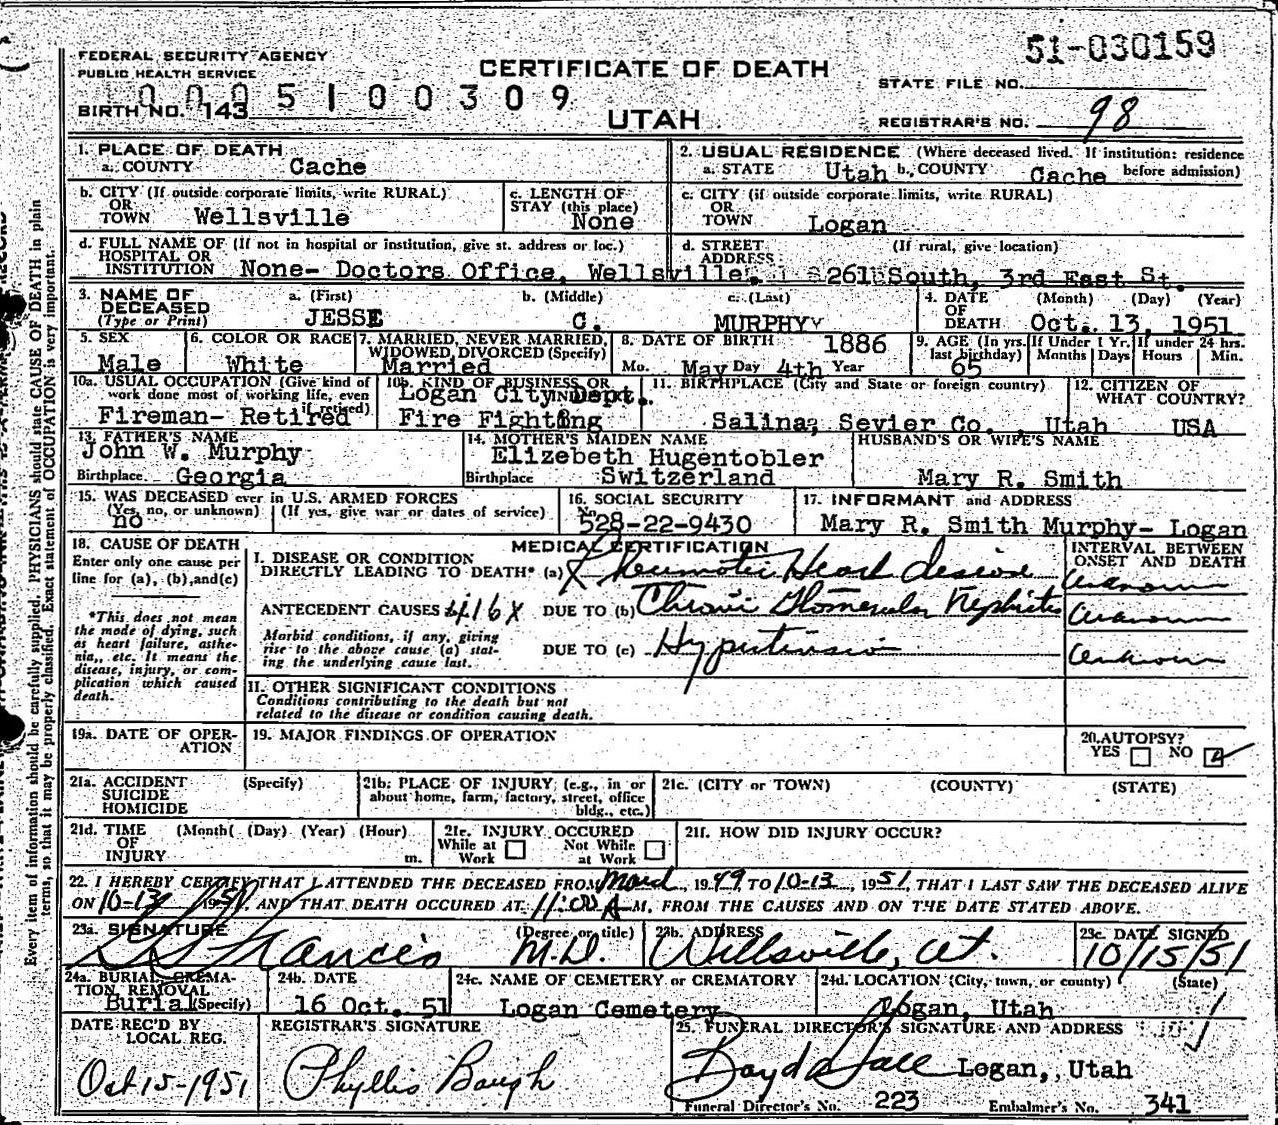 51-030159
FEDERAL SECURITY AGENCY
PUBLIC HEALTH SERVICE
CERTIFICATE OF DEATH
STATE FILE NO.
0005100309
BIRTH NO. 143
UTAH
REGISTRAR'S NO. 98
1. PLACE OF DEATH
a. COUNTY Cache
2. USUAL RESIDENCE (Where deceased lived. If institution: residence before admission)
a. STATE Utah b. COUNTY Cache
b. CITY (If outside corporate limits, write RURAL)
OR
TOWN Wellsville
c. LENGTH OF
STAY (this place)
None
c. CITY (if outside corporate limits, write RURAL)
OR
TOWN Logan
d. FULL NAME OF (If not in hospital or institution, give st. address or loc.)
HOSPITAL OR
INSTITUTION None- Doctors Office, Wellsville,
d. STREET (If rural, give location)
ADDRESS
261 South, 3rd East St.
3. NAME OF
DECEASED
(Type or Print)
a. (First) b. (Middle) c. (Last)
JESSE C. MURPHY
4. DATE (Month) (Day) (Year)
OF
DEATH Oct. 13, 1951
5. SEX
Male
6. COLOR OR RACE
White
7. MARRIED, NEVER MARRIED,
WIDOWED, DIVORCED (Specify)
Married
8. DATE OF BIRTH 1886
Mo. May Day 4th Year
9. AGE (In yrs.
last birthday)
65
If Under 1 Yr.
Months Days
If under 24 hrs.
Hours Min.
10a. USUAL OCCUPATION (Give kind of
work done most of working life, even
if retired)
Fireman- Retired
10b. KIND OF BUSINESS OR
INDUSTRY
Logan City Dept.
Fire Fighting
11. BIRTHPLACE (City and State or foreign country)
Salina, Sevier Co., Utah
12. CITIZEN OF
WHAT COUNTRY?
USA
13. FATHER'S NAME
John W. Murphy
Birthplace Georgia
14. MOTHER'S MAIDEN NAME
Elizebeth Hugentobler
Birthplace Switzerland
HUSBAND'S OR WIFE'S NAME
Mary R. Smith
15. WAS DECEASED ever in U.S. ARMED FORCES
(Yes, no, or unknown) (If yes, give war or dates of service)
no
16. SOCIAL SECURITY
No.
528-22-9430
17. INFORMANT and ADDRESS
Mary R. Smith Murphy- Logan
18. CAUSE OF DEATH
Enter only one cause per
line for (a), (b), and (c)
*This does not mean
the mode of dying, such
as heart failure, asthe-
nia, etc. It means the
disease, injury, or com-
plication which caused
death.
MEDICAL CERTIFICATION
I. DISEASE OR CONDITION
DIRECTLY LEADING TO DEATH* (a) Rheumatic Heart disease
ANTECEDENT CAUSES 416X DUE TO (b) Chronic Glomerular Nephritis
Morbid conditions, if any, giving
rise to the above cause (a) stat-
ing the underlying cause last.
DUE TO (c) Hypertension
INTERVAL BETWEEN
ONSET AND DEATH
unknown
unknown
unknown
II. OTHER SIGNIFICANT CONDITIONS
Conditions contributing to the death but not
related to the disease or condition causing death.
19a. DATE OF OPER-
ATION
19. MAJOR FINDINGS OF OPERATION
20. AUTOPSY?
YES NO
21a. ACCIDENT (Specify)
SUICIDE
HOMICIDE
21b. PLACE OF INJURY (e.g., in or
about home, farm, factory, street, office
bldg., etc.)
21c. (CITY or TOWN) (COUNTY) (STATE)
21d. TIME (Month) (Day) (Year) (Hour)
OF
INJURY m.
21e. INJURY OCCURED
While at Work Not While at Work
21f. HOW DID INJURY OCCUR?
22. I HEREBY CERTIFY THAT I ATTENDED THE DECEASED FROM March, 1949 TO 10-13, 1951, THAT I LAST SAW THE DECEASED ALIVE
ON 10-13 1951, AND THAT DEATH OCCURED AT 11:00 A M. FROM THE CAUSES AND ON THE DATE STATED ABOVE.
23a. SIGNATURE (Degree or title)
Francis M.D.
23b. ADDRESS
Wellsville, Ut.
23c. DATE SIGNED
10/15/51
24a. BURIAL, CREMA-
TION REMOVAL
Burial (Specify)
24b. DATE
16 Oct. 51
24c. NAME OF CEMETERY or CREMATORY
Logan Cemetery
24d. LOCATION (City, town, or county) (State)
Logan, Utah
DATE REC'D BY
LOCAL REG.
Oct 15-1951
REGISTRAR'S SIGNATURE
Phyllis Baugh
25. FUNERAL DIRECTOR'S SIGNATURE AND ADDRESS
Boyd Hall Logan, Utah
Funeral Director's No. 223 Embalmer's No. 341
Every item of information should be carefully supplied. PHYSICIANS should state CAUSE OF DEATH in plain
terms, so that it may be properly classified. Exact statement of OCCUPATION is very important.